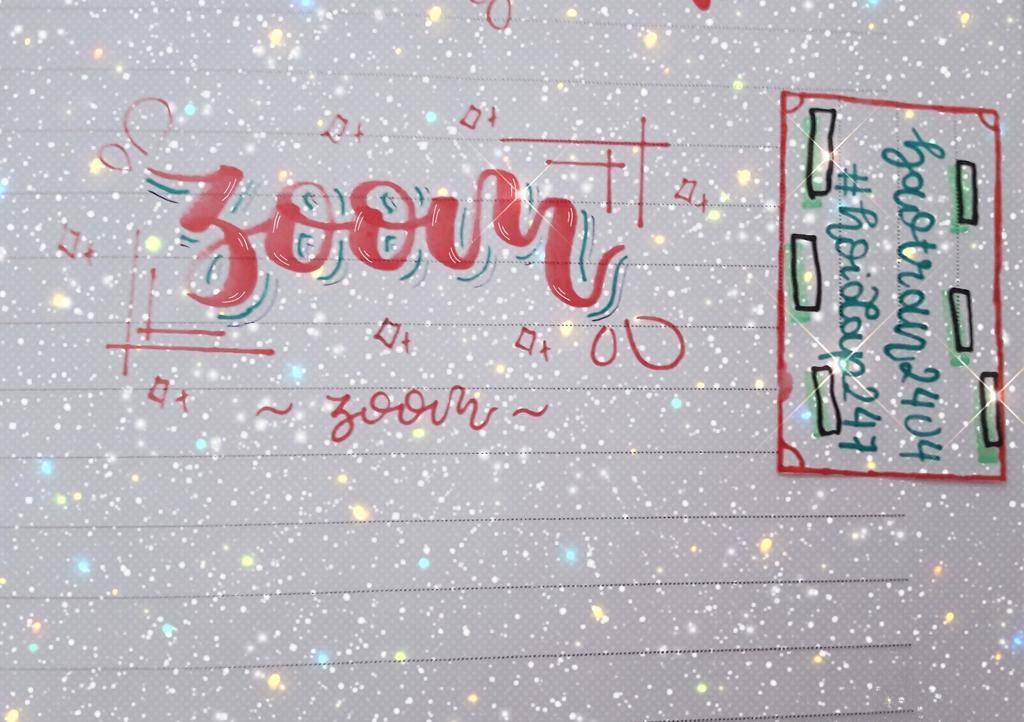 zoom
~ zoom ~
baotran2404
#hoidap247